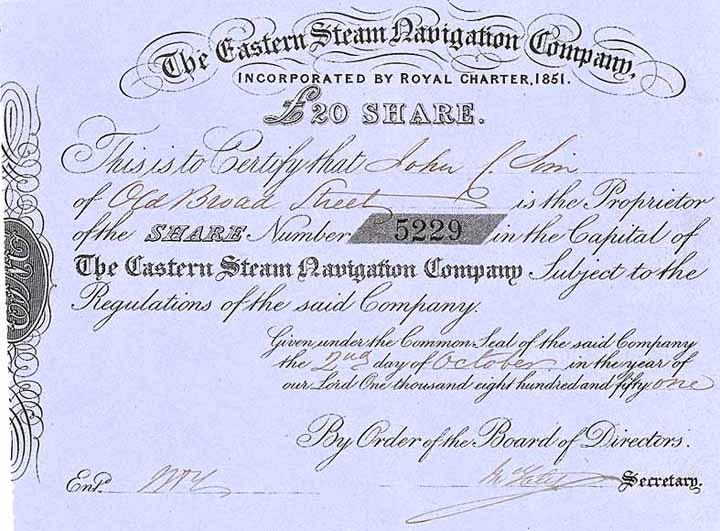 The Eastern Steam Navigation Company,
INCORPORATED BY ROYAL CHARTER, 1851.
£20 SHARE.
This is to Certify that John C. Sim
of Old Broad Street is the Proprietor
of the SHARE Number 5229 in the Capital of
The Eastern Steam Navigation Company Subject to the
Regulations of the said Company.
Given under the Common Seal of the said Company
the 2nd day of October in the year of
our Lord One thousand eight hundred and fifty one
By Order of the Board of Directors.
Entd. Secretary.